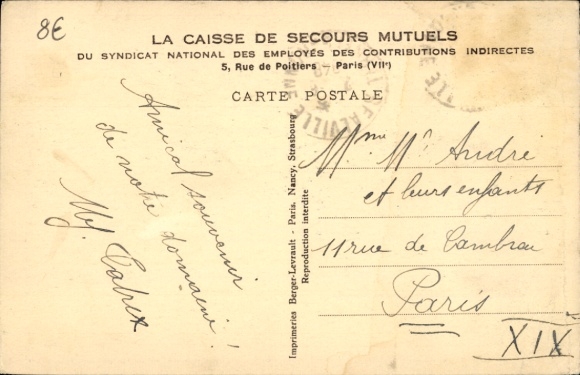 8€
LA CAISSE DE SECOURS MUTUELS
DU SYNDICAT NATIONAL DES EMPLOYÉS DES CONTRIBUTIONS INDIRECTES
5, Rue de Poitiers — Paris (VIIᵉ)
CARTE POSTALE
Amical souvenir
de notre domaine !
Imprimeries Berger-Levrault - Paris, Nancy, Strasbourg
Reproduction interdite
Mme Mr André
et leurs enfants
11 rue de Cambrai
Paris
XIX